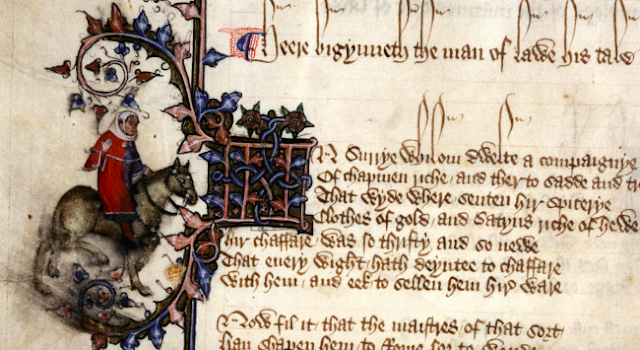 Heere bigynneth the man of Lawe his tale
IN Surrye whilom dwelte a compaignye
Of chapmen riche and ther to sadde and tr
That wyde where senten hir spicerye
Clothes of gold and Satyns riche of hewe
hir chaffare was so thrifty and so newe
That euery wight hath deyntee to chaffare
With hem and eek to sellen hem hir ware
Now fil it that the maistres of that sort
han shapen hem to Rome for to wende